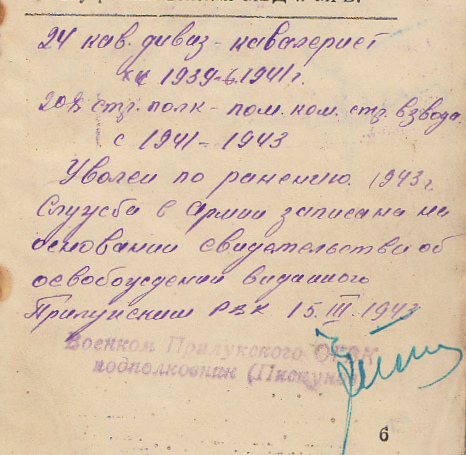 МВД и МГБ.
24 кав. дивиз - кавалерист
1939-1941 г.
стр. полк - пом. ком. стр. взвода.
с 1941 - 1943
Уволен по ранению 1943 г.
Служба в армии записана на
основании свидетельства об
освобождении виданного
Прилукским РВК 15.III.1943
Военком Прилукского ОГВК
подполковник (Пискунов)
6